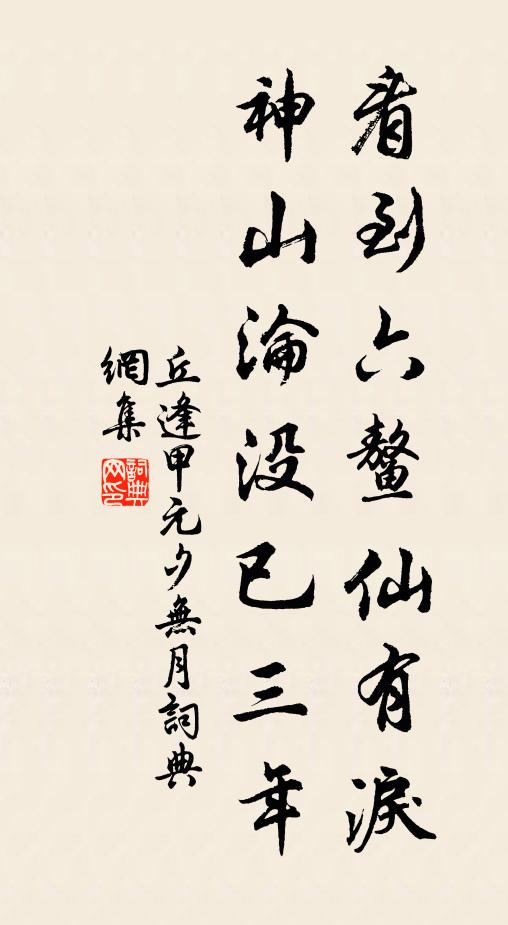 看到六鳌仙有淚
神山淪没已三年
丘逢甲元夕無月詞典
網集
詞典网印